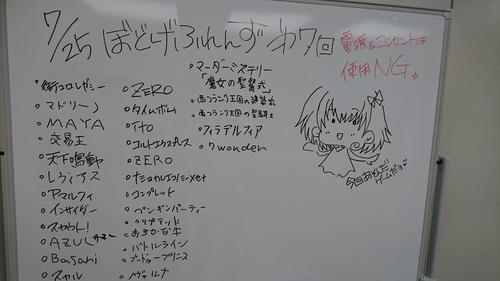 7/25 ぼどげふれんず わ7回
電源&コンセントは
使用NG。
街コロレガシー
マドリーノ
MAYA
交易王
天下鳴動
レヴィアス
アマルフィ
インサイダー
スカウト!
AZUL サマー
Basari
スカル
ZERO
タイムボム
ito
コルトエクスプレス
ZERO
ナショナルエコノミーメセナ
コンプレット
ペンギンパーティー
クリプティッド
おろかな牛
バトルライン
ブードゥープリンス
ノヴァルナ
マーダーミステリー
「魔女の聖餐式」
西フランク王国の建築家
西フランク王国の聖騎士
フィラデルフィア
7 wonder
今回あそんだ
ゲームだよ